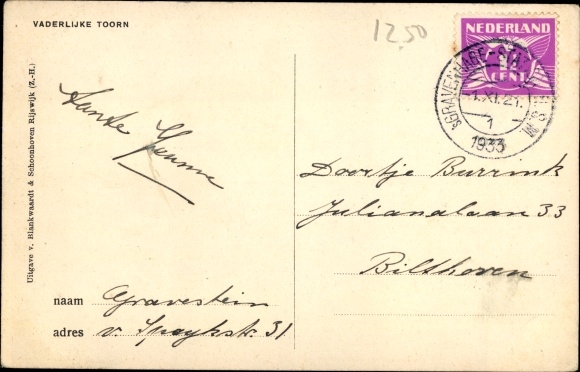 VADERLIJKE TOORN
12,50
NEDERLAND
CENT.
1933
Uitgave v. Blankwaardt & Schoonhoven Rijswijk (Z.-H.)
Tante
Doortje Burrink
Julianalaan 33
Bilthoven
naam Gravestein
adres v. Speykstr. 31